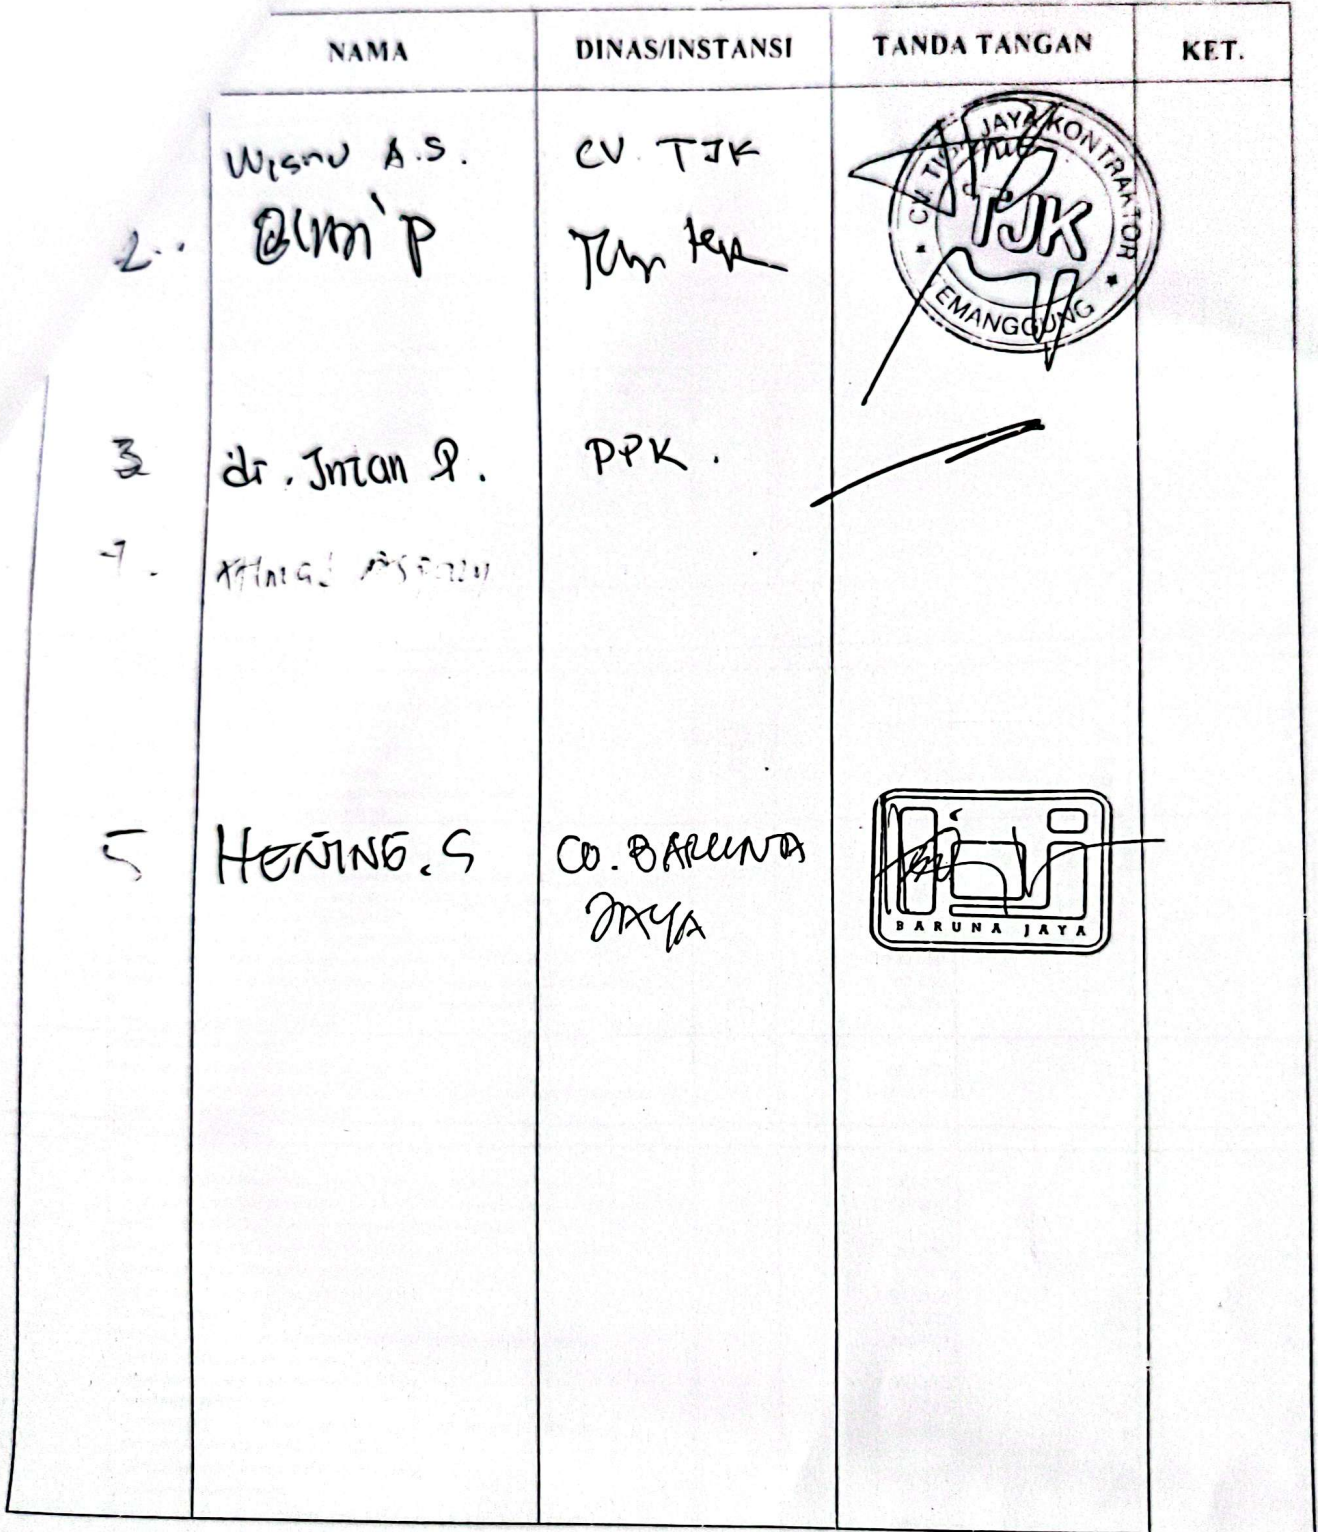 NAMA DINAS/INSTANSI TANDA TANGAN KET.
Wisnu A.S. CV. TJK
JAYA KONTRAKTOR
CV.
TJK
EMANGGUNG
2.
3 dr. Intan P. PPK.
5 HENING. S CV. BARUNA
JAYA
BARUNA JAYA